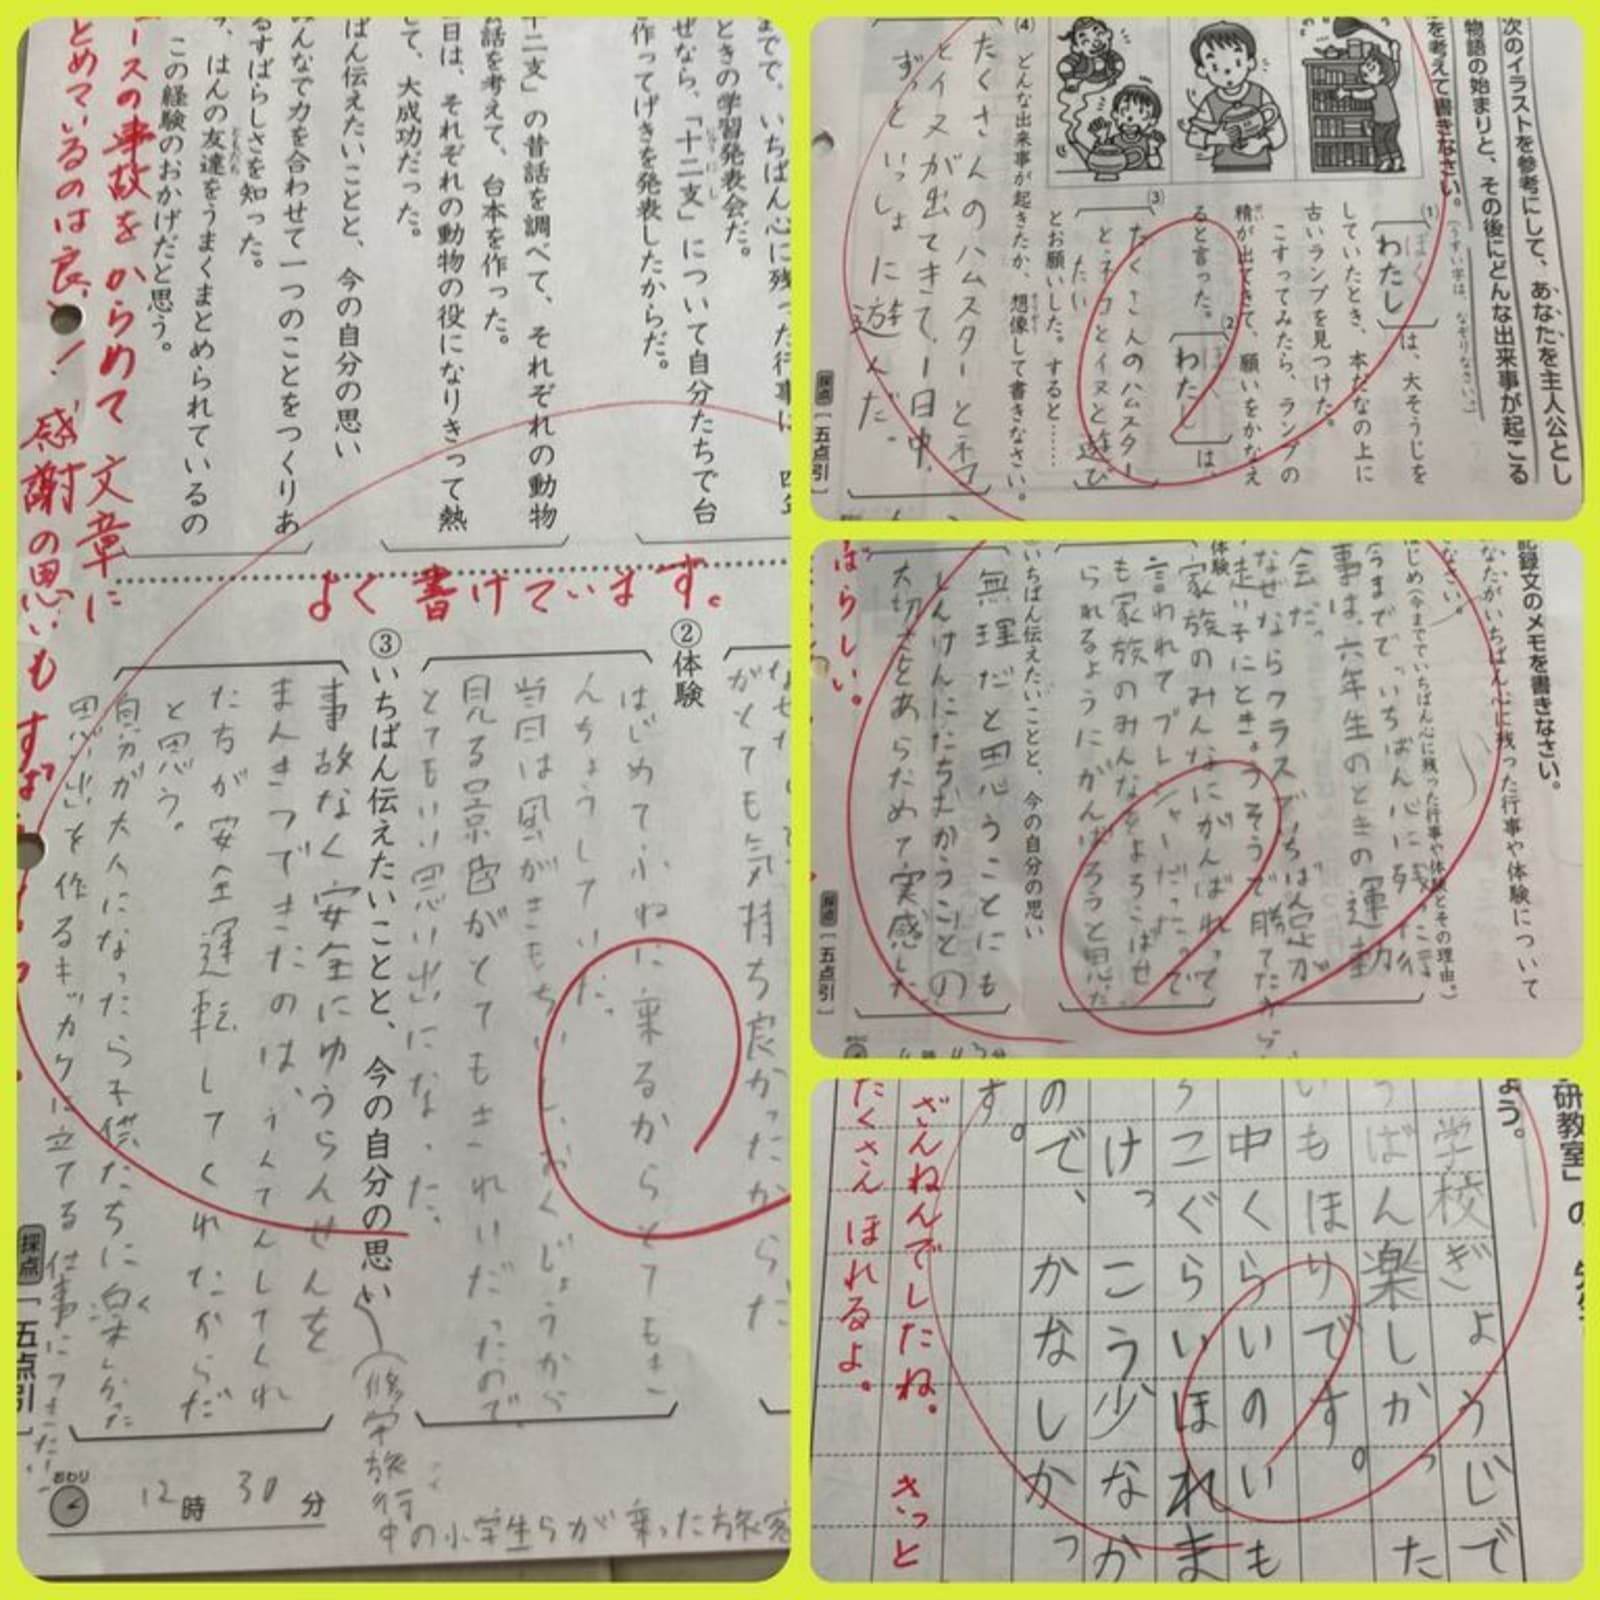 までで、いちばん心に残った行事は、四年
ときの学習発表会だ。
ぜなら、「十二支」について自分たちで台
作ってげきを発表したからだ。
十二支」の昔話を調べて、それぞれの動物
話を考えて、台本を作った。
日は、それぞれの動物の役になりきって熱
して、大成功だった。
ばん伝えたいことと、今の自分の思い
みんなで力を合わせて一つのことをつくりあ
るすばらしさを知った。
、はんの友達をうまくまとめられているの
この経験のおかげだと思う。
ースの事故をからめて文章に
とめているのは良い！感謝の思いもすば
よく書けています。
がとても気持ち良かったからだ
②体験
はじめてふねに乗るからとてもき
んちょうしていた。
当日は風がきもちいし、おくじょうから
見る景色がとてもきれいだったので、
とてもいい思い出になった。
③いちばん伝えたいことと、今の自分の思い
事故なく安全にゆうらんせんを
まんきつできたのは、うんてんしてくれ
たちが安全運転してくれたからだ
と思う。
自分が大人になったら子供たちに楽しかった
思い出を作るキッカケに立てる仕事につきたい
(修学旅行
中の小学生らが乗った旅客
採点 一五点引
おわり
12時30分
次のイラストを参考にして、あなたを主人公とし
物語の始まりと、その後にどんな出来事が起こる
を考えて書きなさい。
(うすい字は、なぞりなさい。)
(1)
わたし
は、大そうじを
していたとき、本だなの上に
古いランプを見つけた。
こすってみたら、ランプの
精が出てきて、願いをかなえ
ると言った。
(2)
わたし
は、
(3)
たくさんのハムスター
とネコとイヌと遊び
たい
とお願いした。すると……
(4) どんな出来事が起きたか、想像して書きなさい。
たくさんのハムスターとネコ
とイヌが出てきて、1日中、
ずっといっしょに遊んだ。
採点 一五点引
記録文のメモを書きなさい。
なたがいちばん心に残った行事や体験について
なさい。
はじめ(今まででいちばん心に残った行事や体験とその理由。)
今までで、いちばん心に残った行
事は、六年生のときの運動
会だ。
なぜならクラスでいちばん足が
走い子にときょうそうで勝てたから
体験
家族のみんなにがんばれって
言われてプレッシャーだった。で
も家族のみんなをよろこばせ
られるようにがんばろうと思った
いちばん伝えたいことと、今の自分の思い
無理だと思うことにも
しんけんにたちむかうことの
大切さをあらためて実感した
ばらしい。
採点 一五点引
研教室」の
ょう。
学校ぎょうじで
ばん楽しかった
いもほりです。
中くらいのいも
こぐらいほれま
けっこう少なか
ので、かなしかっ
す。
ざんねんでしたね。きっと
たくさんほれるよ。